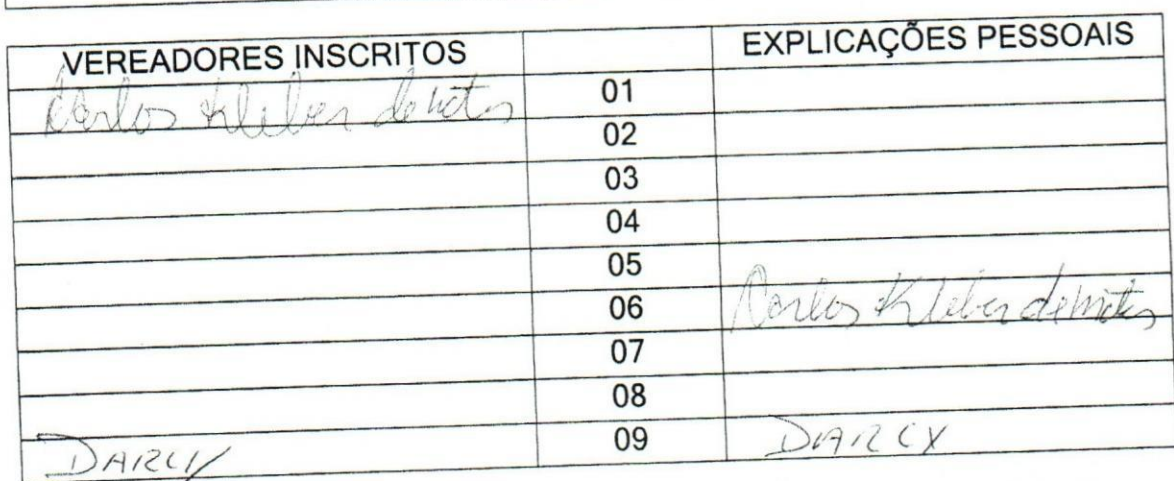 VEREADORES INSCRITOS EXPLICAÇÕES PESSOAIS
Carlos Kleber de Matos 01
02
03
04
05
06 Carlos Kleber de Matos
07
08
DARCY 09 DARCY